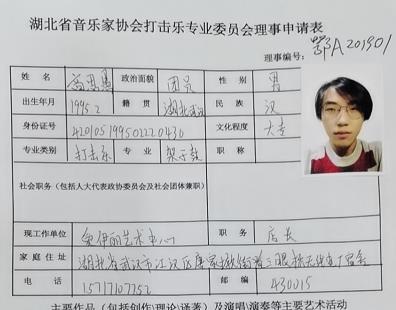 湖北省音乐家协会打击乐专业委员会理事申请表
理事编号：鄂A201901
姓 名 政治面貌 团员 性 别 男
出生年月 1995.2 籍 贯 湖北武汉 民 族 汉
身份证号 420105199502220430 文化程度 大专
专业类别 打击乐 专 业 架子鼓 职 称
社会职务（包括人大代表政协委员会及社会团体兼职）
现工作单位 艺术中心 职 务 店长
家庭住址 湖北省武汉市江汉区唐家墩
电 话 15717107752 邮 编 430015
主要作品（包括创作\理论\译著）及演唱\演奏等主要艺术活动